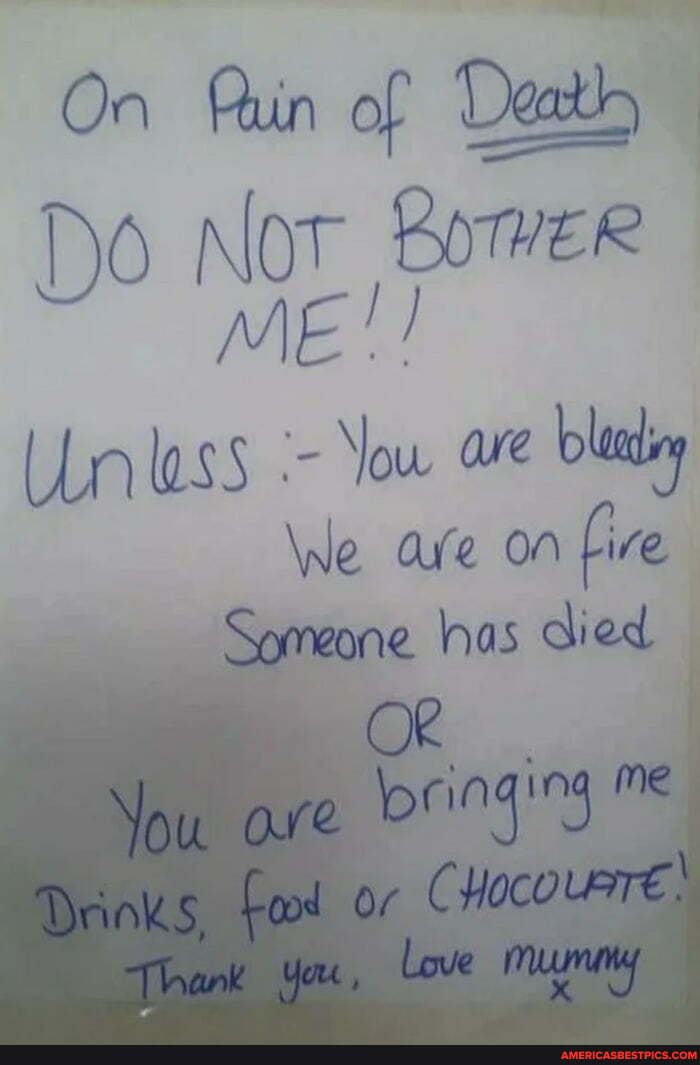 On Pain of Death
DO NOT BOTHER
ME!!
Unless :- You are bleeding
We are on fire
Someone has died
OR
You are bringing me
Drinks, food or CHOCOLATE!
Thank you, Love mummy
x
AMERICASBESTPICS.COM